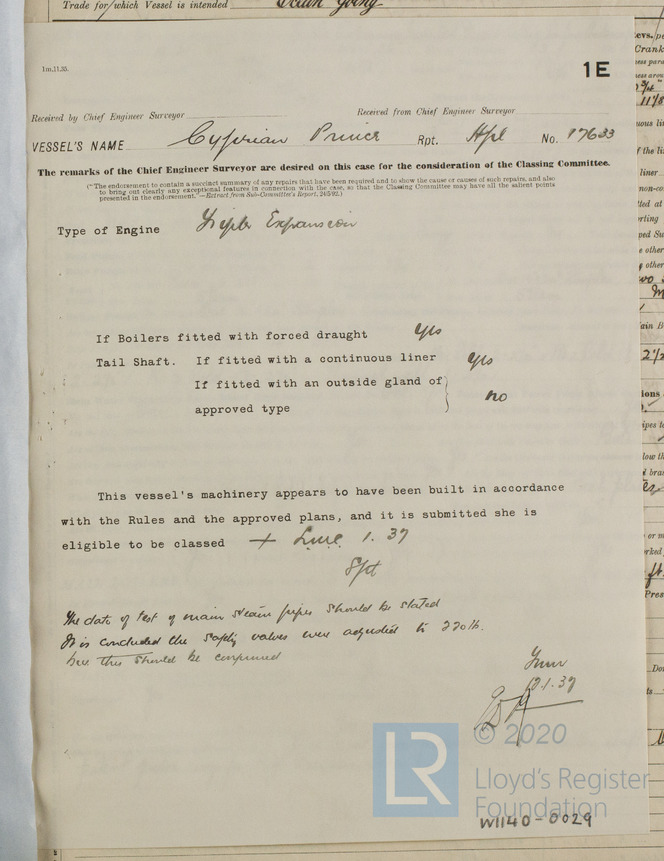 Trade for which Vessel is intended Ocean Going
1m.11.35.
1E
Received by Chief Engineer Surveyor
Received from Chief Engineer Surveyor
VESSEL'S NAME Cyprian Prince Rpt. Hpl No. 17633
The remarks of the Chief Engineer Surveyor are desired on this case for the consideration of the Classing Committee.
("The endorsement to contain a succinct summary of any repairs that have been required and to show the cause or causes of such repairs, and also
to bring out clearly any exceptional features in connection with the case, so that the Classing Committee may have all the salient points
presented in the endorsement."—Extract from Sub-Committee's Report, 24/5/92.)
Type of Engine Triple Expansion
If Boilers fitted with forced draught yes
Tail Shaft. If fitted with a continuous liner yes
If fitted with an outside gland of
approved type no
This vessel's machinery appears to have been built in accordance
with the Rules and the approved plans, and it is submitted she is
eligible to be classed + LMC 1.37
Spt
The date of test of main steam pipes should be stated
It is concluded the safety valves were adjusted to 220 lb.
but this should be confirmed
12.1.37
© 2020
LR
Lloyd's Register
Foundation
W1140-0029